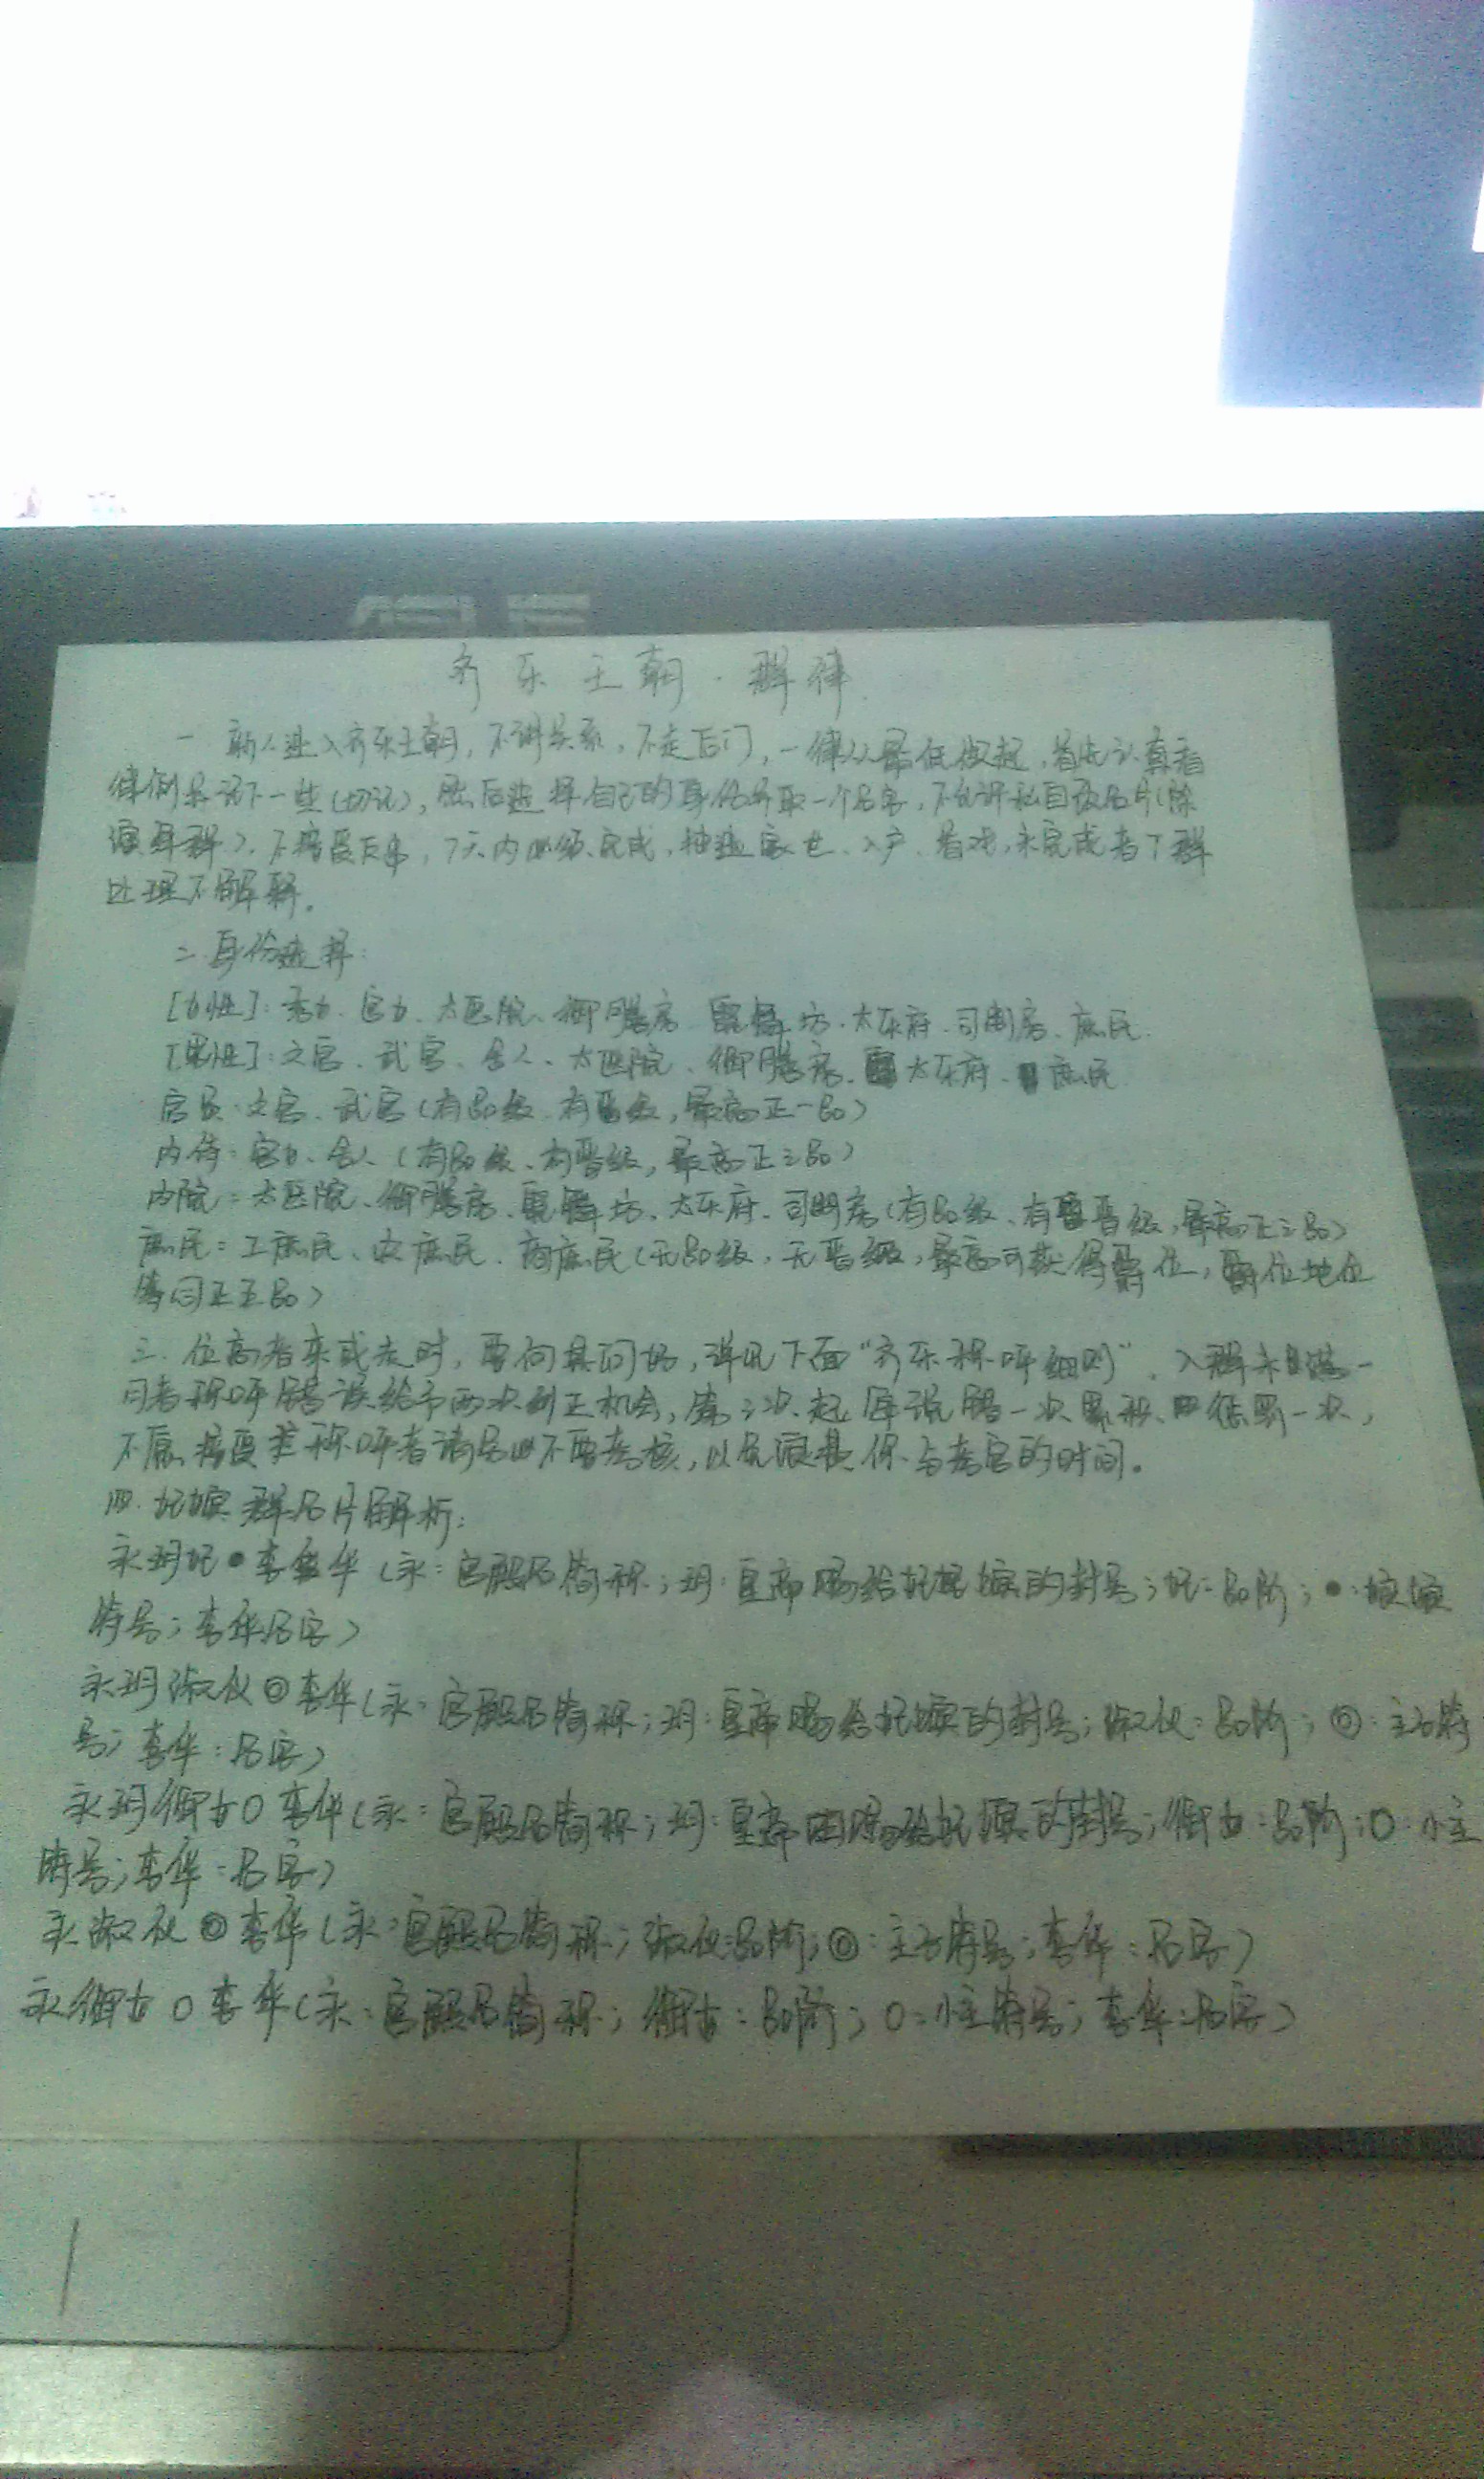 齐乐王朝·群律
一 新人进入齐乐王朝，不讲关系，不走后门，一律从最低做起，首先认真看
律例并记下一些(切记)，然后选择自己的身份并取一个名字，不允许私自改名片(除
演绎群)，不接受反串，7天内必须完成，抽选家世、入户、看戏，未完成者T群
处理不解释。
二.身份选择：
[女性]：秀女、宫女、太医院、御膳房、霓舞坊、太乐府、司制房、庶民
[男性]：文官、武官、舍人、太医院、御膳房、太乐府、庶民
官员：文官、武官(有品级、有晋级，最高正一品)
内侍：宫女、舍人(有品级、有晋级，最高正三品)
内院：太医院、御膳房、霓舞坊、太乐府、司制房(有品级、有晋级，最高正三品)
庶民：工庶民、农庶民、商庶民(无品级，无晋级，最高可获得爵位，爵位地位
等同正五品)
三.位高者来或走时，要向其问好，详见下面“齐乐称呼细则”，入群未满一
月者称呼错误给予两次纠正机会，第三次起每说错一次累积、惩罚一次，
不愿接受者称呼者请另不要考核，以免浪费你与考官的时间。
四.妃嫔群名片解析：
永玥妃●李华(永：宫殿名简称；玥：皇帝赐给妃嫔的封号；妃：品阶；●：嫔嫔
符号；李华：名字)
永玥淑仪◎李华(永：宫殿名简称；玥：皇帝赐给妃嫔的封号；淑仪：品阶；◎：主子符
号；李华：名字)
永玥御女O李华(永：宫殿名简称；玥：皇帝赐给妃嫔的封号；御女：品阶；O：小主
符号；李华：名字)
永淑仪◎李华(永：宫殿名简称；淑仪：品阶；◎：主子符号；李华：名字)
永御女O李华(永：宫殿名简称；御女：品阶；O：小主符号；李华：名字)